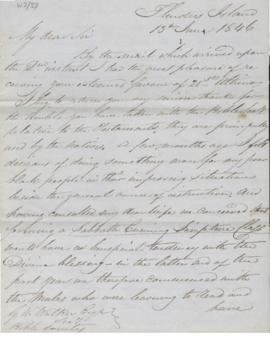 W9/38
Flinders Island
13th June 1846
My dear Sir
By the mail which arrived upon
the 2nd instant I had the great pleasure of re
ceiving your esteemed favour of 21st Ultimo
I beg to return you my sincere thanks for
the trouble you have taken with the
relative to the Testaments, they are principally
used by the natives. A few months ago I felt
desirous of doing something more for my poor
black people in their improving situations
beside the general course of instruction. And
having consulted my dear wife we conceived that
forming a Sabbath Evening Scripture Class
would have a beneficial tendency with the
Divine blessing - in the latter end of the
past year we therefore commenced with
the Males who were learning to read and
G. W. Walker Esqr
have
Bible Society